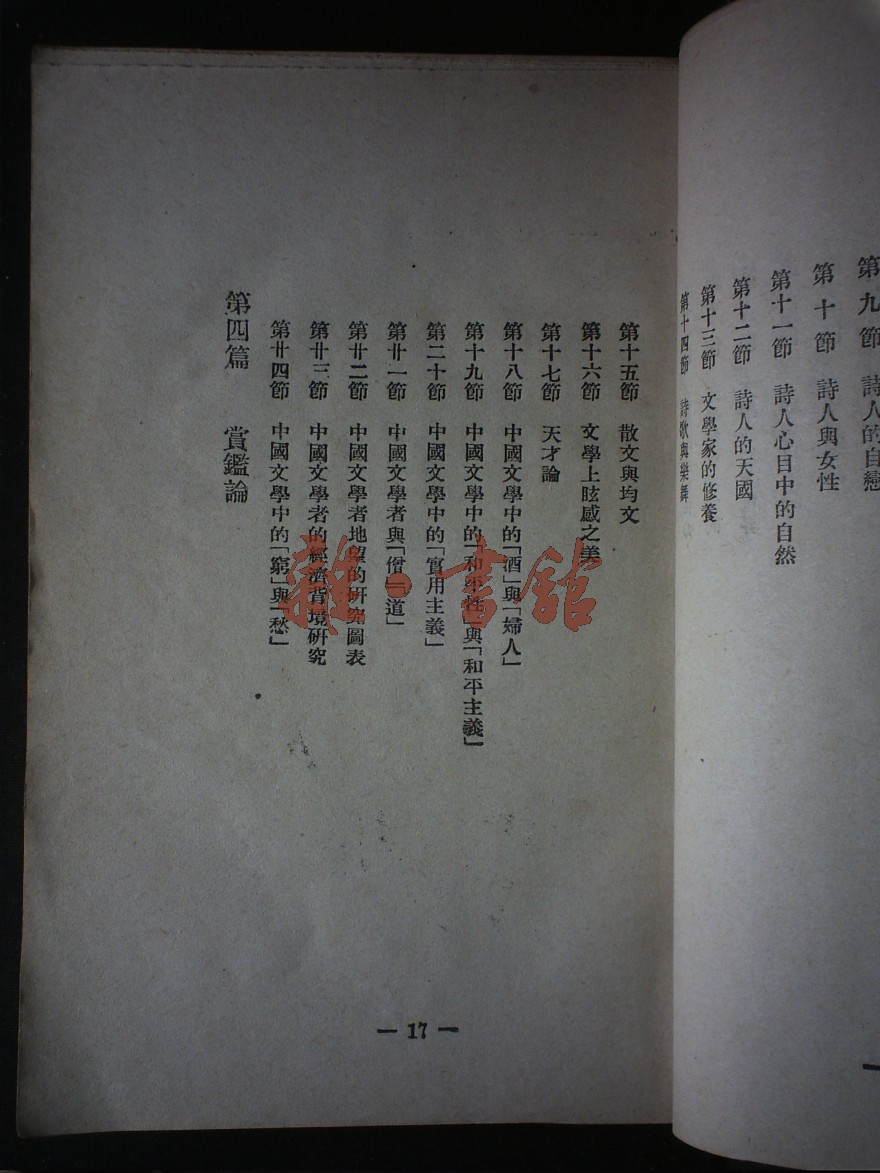 第九節　詩人的自戀
第十節　詩人與女性
第十一節　詩人心目中的自然
第十二節　詩人的天國
第十三節　文學家的修養
第十四節　詩歌與樂舞
第十五節　散文與均文
第十六節　文學上眩感之美
第十七節　天才論
第十八節　中國文學中的「酒」與「婦人」
第十九節　中國文學中的「和平性」與「和平主義」
第二十節　中國文學中的「實用主義」
第廿一節　中國文學者與「僧」「道」
第廿二節　中國文學者地望的研究圖表
第廿三節　中國文學者的經濟背境研究
第廿四節　中國文學中的「窮」與「愁」
第四篇　賞鑑論
— 17 —
雜·書館